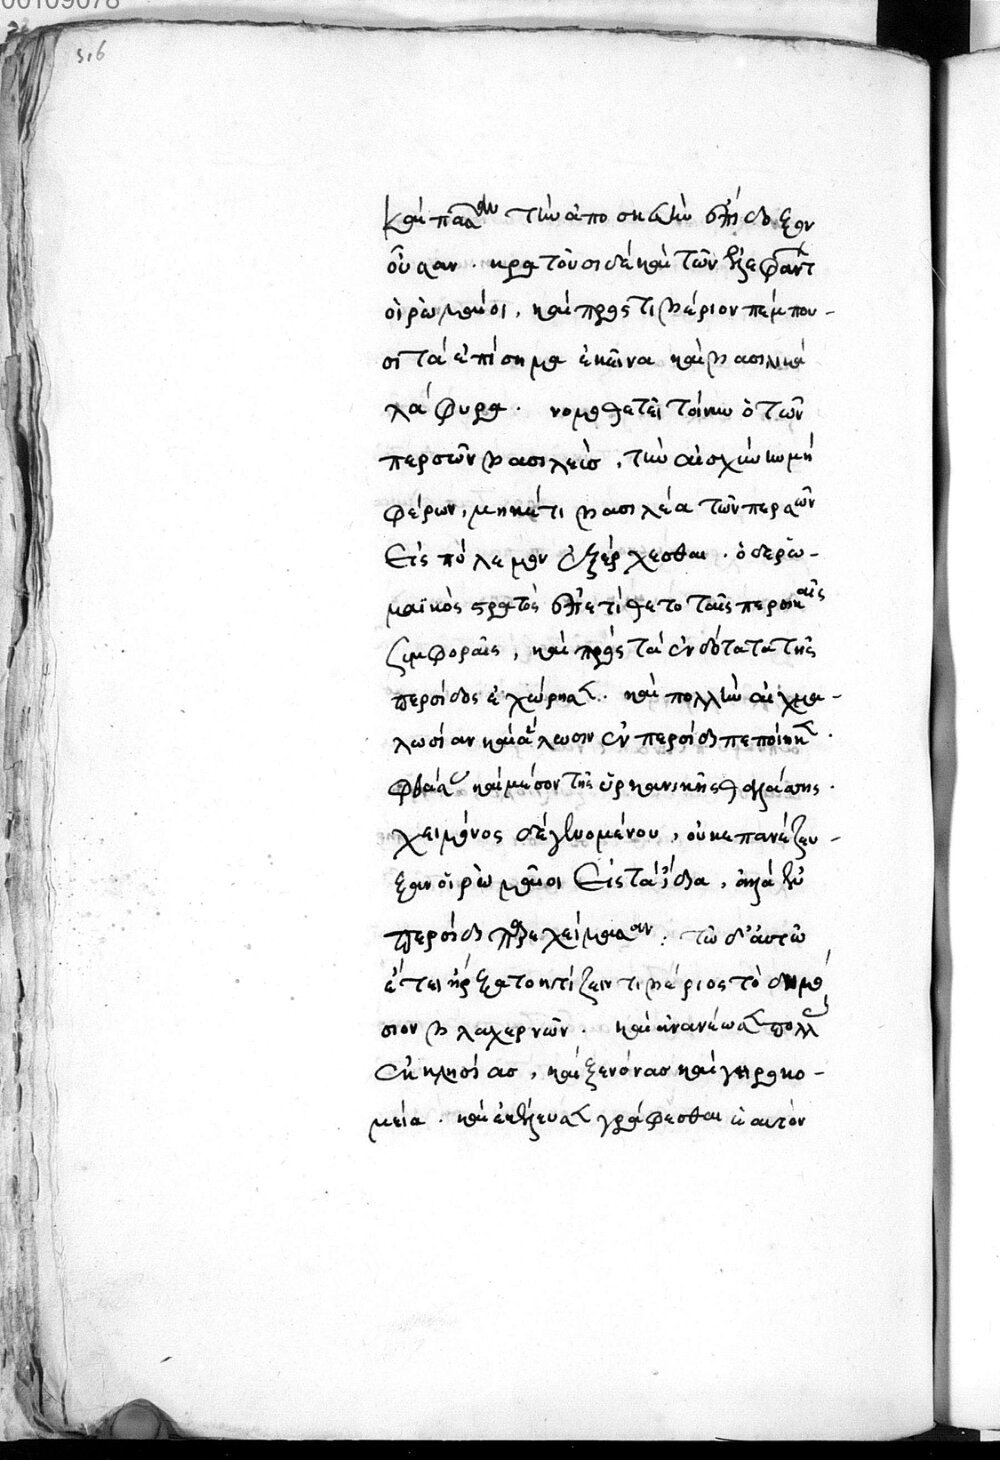 00109078
316
καὶ πᾶσαν τὴν ἀποσκευὴν ἐπίδοξον
οὖσαν. κρατοῦσι δὲ καὶ τῶν ἐλεφάντ
οἱ ῥωμαῖοι, καὶ πρὸς τιβέριον πέμπου-
σι τὰ ἐπίσημα ἐκεῖνα καὶ βασιλικὰ
λάφυρα. νομοθετεῖ τοίνυν ὁ τῶν
περσῶν βασιλεὺς, τὴν αἰσχύνην μὴ
φέρων, μηκέτι βασιλέα τῶν περσῶν
εἰς πόλεμον ἐξέρχεσθαι. ὁ δὲ ῥω-
μαϊκὸς στρατὸς ἐπετίθετο ταῖς περσικαῖς
ξυμφοραῖς, καὶ πρὸς τὰ ἐνδότατα τῆς
περσίδος ἐχώρησε. καὶ πολλὴν αἰχμα-
λωσίαν καὶ ἅλωσιν ἐν περσίδι πεποίηκε.
φθάσας καὶ μέσον τῆς ὑρκανικῆς θαλάσσης.
χειμῶνος δὲ γενομένου, οὐκ ἐπανέζευ-
ξαν οἱ ῥωμαῖοι εἰς τὰ ἴδια, ἀλλὰ ἐν
περσίδι παρεχείμασαν. τῷ δ' αὐτῷ
ἔτει ἤρξατο κτίζειν τιβέριος τὸ δημό
σιον βλαχερνῶν. καὶ ἀνανέωσε πολλ
ἐκκλησίας, καὶ ξενόνας καὶ γηροκο-
μεία. καὶ ἐκέλευσε γράφεσθαι ἑαυτὸν